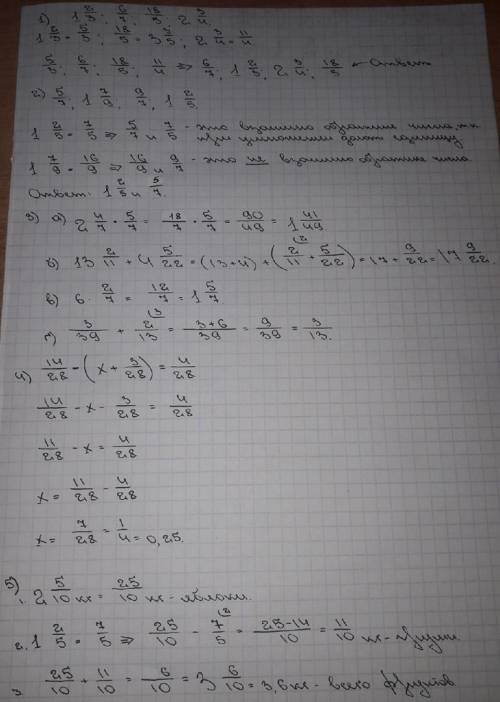 1) 1 2/5; 6/7; 18/5; 2 3/4
1 2/5 = 5/5; 18/5 = 3 3/5; 2 3/4 = 11/4
5/5; 6/7; 18/5; 11/4 => 6/7; 1 2/5; 2 3/4; 18/5 ← Ответ
2) 5/7; 1 7/9; 9/7; 1 2/5.
1 2/5 = 7/5 => 5/7 и 7/5 - это взаимно обратные числа, т.к.
при умножении дают единицу
1 7/9 = 16/9 => 16/9 и 9/7 - это не взаимно обратные числа
Ответ: 1 2/5 и 5/7.
3) а) 2 4/7 · 5/7 = 18/7 · 5/7 = 90/49 = 1 41/49
б) 13 2/11 + 4 5/22 = (13+4) + (2/11 (2 + 5/22) = 17 + 9/22 = 17 9/22.
в) 6 · 2/7 = 12/7 = 1 5/7
г) 3/39 + 2/13 (3 = 3+6/39 = 9/39 = 3/13.
4) 14/28 - (x + 3/28) = 4/28
14/28 - x - 3/28 = 4/28
11/28 - x = 4/28
x = 11/28 - 4/28
x = 7/28 = 1/4 = 0,25.
5)
1. 2 5/10 кг = 25/10 кг - яблоки.
2. 1 2/5 = 7/5 => 25/10 - 7/5 (2 = 25-14/10 = 11/10 кг - груши.
3 25/10 + 11/10 = 6/10 = 3 6/10 = 3,6 кг - всего фруктов